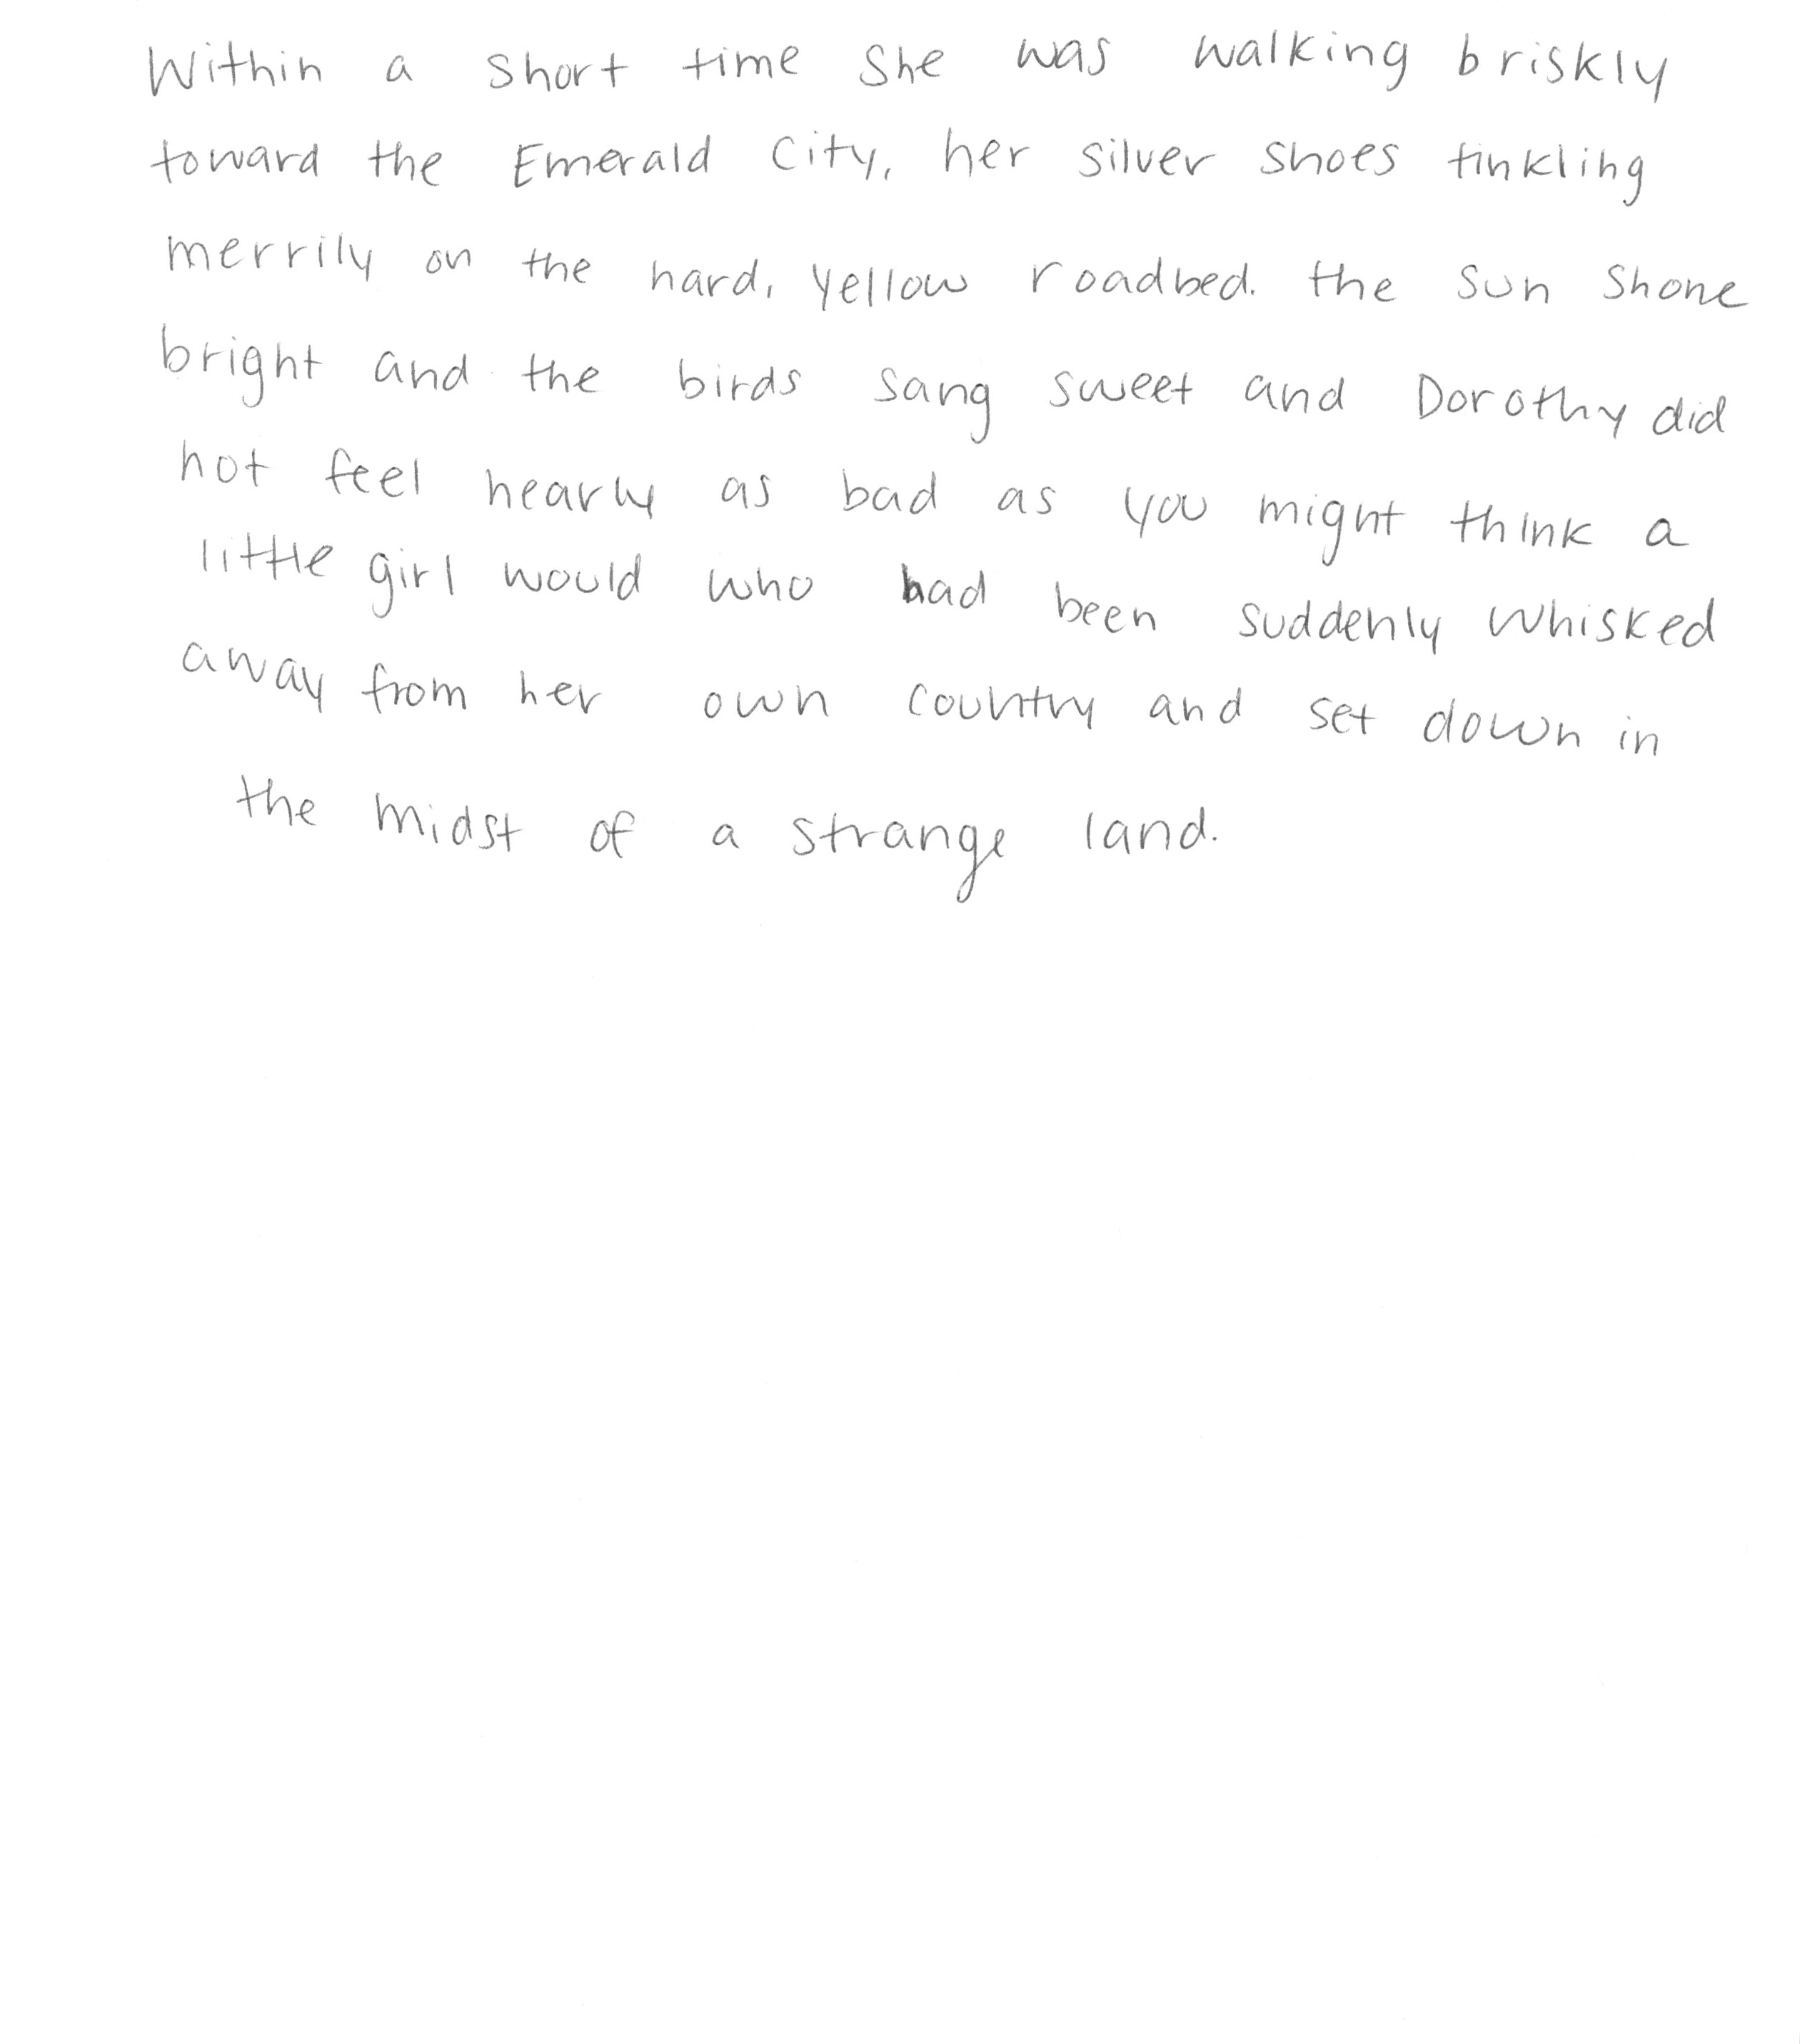 Within a short time she was walking briskly
toward the Emerald City, her silver shoes tinkling
merrily on the hard, yellow roadbed. the sun shone
bright and the birds sang sweet and Dorothy did
not feel nearly as bad as you might think a
little girl would who had been suddenly whisked
away from her own country and set down in
the midst of a strange land.